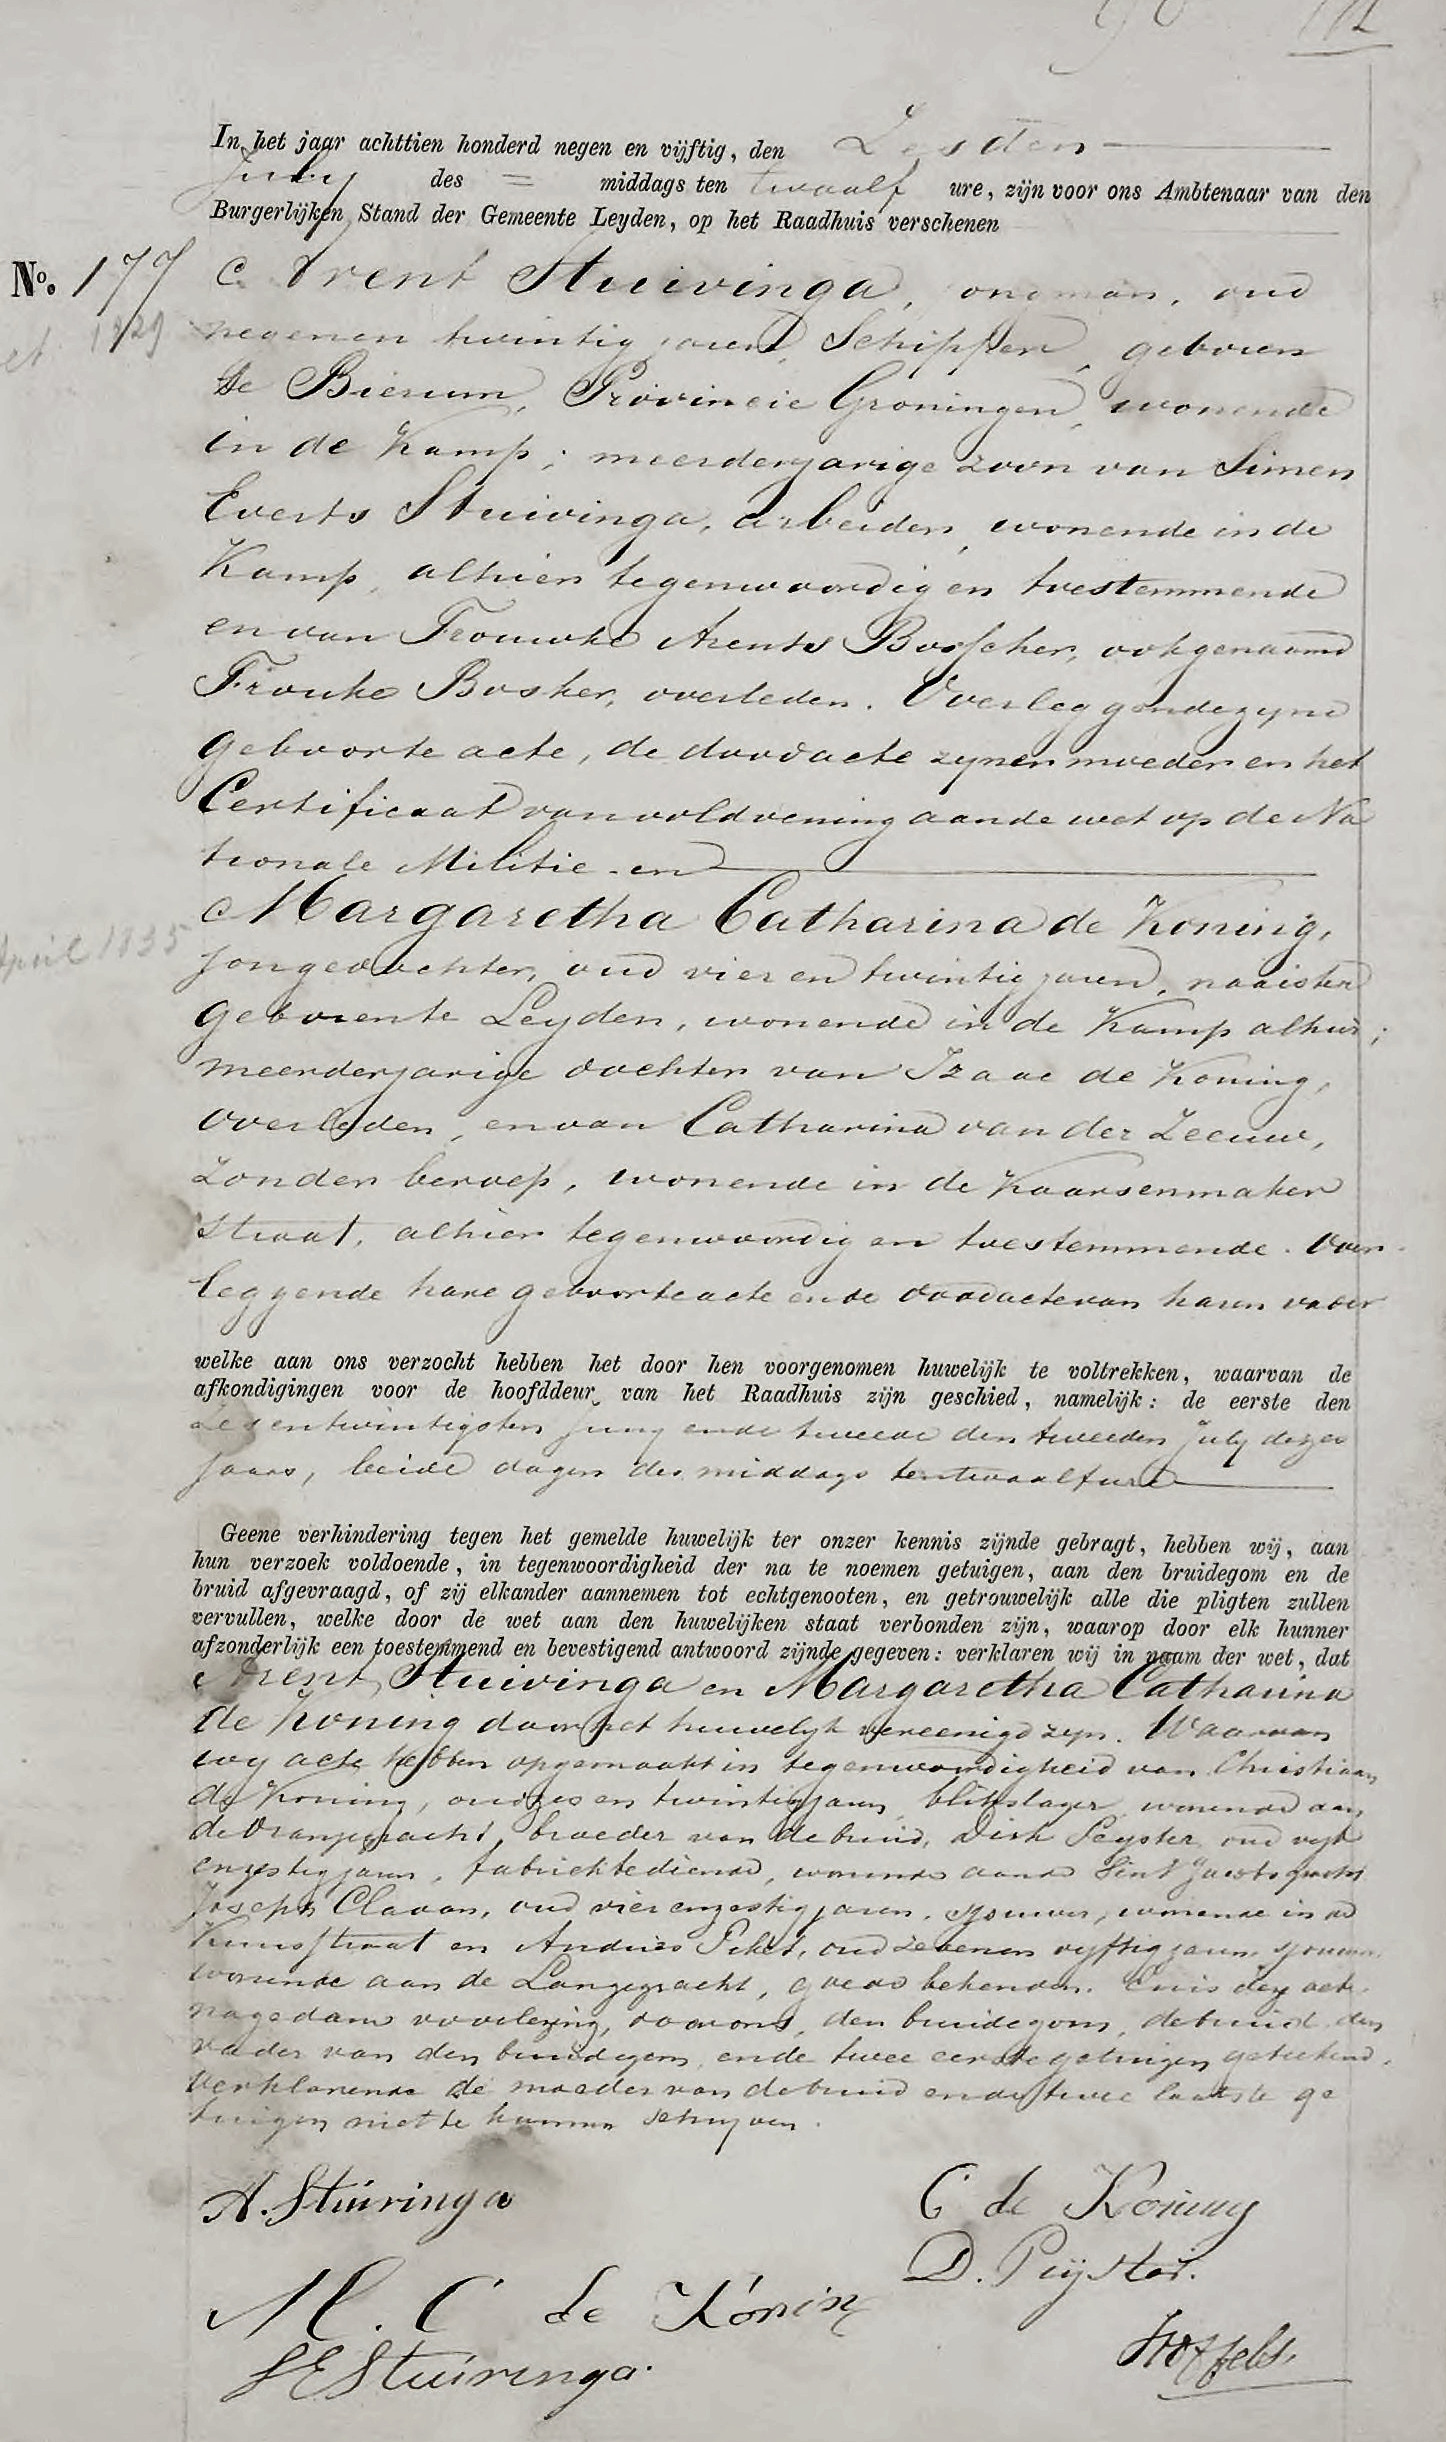 In het jaar achttien honderd negen en vijftig, den Zesden
July des = middags ten twaalf ure, zijn voor ons Ambtenaar van den
Burgerlijken Stand der Gemeente Leyden, op het Raadhuis verschenen
No. 177
Arent Stuivinga, jongman, oud
1829
negenen twintig jaren, Schipper, geboren
te Bierum, Provincie Groningen, wonende
in de Kamp; meerderjarige zoon van Simen
Everts Stuivinga, arbeider, wonende in de
Kamp, alhier tegenwoordig en toestemmende
en van Trouwke Arents Bosscher, ook genaamd
Frouke Bosker, overleden. Overleggende zyne
geboorte acte, de doodacte zyner moeder en het
Certificaat van voldoening aan de wet op de Na
tionale Militie en
Margaretha Catharina de Koning,
April 1835
jongedochter, oud vier en twintig jaren, naaister
geboren te Leyden, wonende in de Kamp alhier;
meerderjarige dochter van Izaac de Koning,
overleden, en van Catharina van der Zeeuw,
zonder beroep, wonende in de Kaarsenmaker
straat, alhier tegenwoordig en toestemmende. Over
leggende hare geboorteacte en de doodacte van haren vader
welke aan ons verzocht hebben het door hen voorgenomen huwelijk te voltrekken, waarvan de
afkondigingen voor de hoofddeur van het Raadhuis zijn geschied, namelijk: de eerste den
zesentwintigsten Juny en de tweede den tweeden July dezes
jaars, beide dagen des middags ten twaalf ure
Geene verhindering tegen het gemelde huwelijk ter onzer kennis zijnde gebragt, hebben wij, aan
hun verzoek voldoende, in tegenwoordigheid der na te noemen getuigen, aan den bruidegom en de
bruid afgevraagd, of zij elkander aannemen tot echtgenooten, en getrouwelijk alle die pligten zullen
vervullen, welke door de wet aan den huwelijken staat verbonden zijn, waarop door elk hunner
afzonderlijk een toestemmend en bevestigend antwoord zijnde gegeven: verklaren wij in naam der wet, dat
Arent Stuivinga en Margaretha Catharina
de Koning door het huwelyk vereenigd zyn. Waarvan
wy acte hebben opgemaakt in tegenwoordigheid van Christiaan
de Koning, oud zes en twintig jaren, blikslager, wonende aan
de Oranjegracht, broeder van de bruid, Dirk Peyster, oud vyf
en zestig jaren, fabriekbediende, wonende aan de Sint Jacobsgracht
Joseph Clavan, oud vier en zestig jaren, sjouwer, wonende in de
straat en Andries Piket, oud zeven en vyftig jaren, sjouwer
wonende aan de Langegracht, goede bekenden. En is deze acte
na gedane voorlezing, door ons, den bruidegom, de bruid, den
vader van den bruidegom, en de twee eerste getuigen geteekend,
verklarende de moeder van de bruid en de twee laatste ge
tuigen niet te kunnen schryven.
A. Stuivinga
C de Koning
D. Peijster.
M. C de Konin
S E Stuivinga.